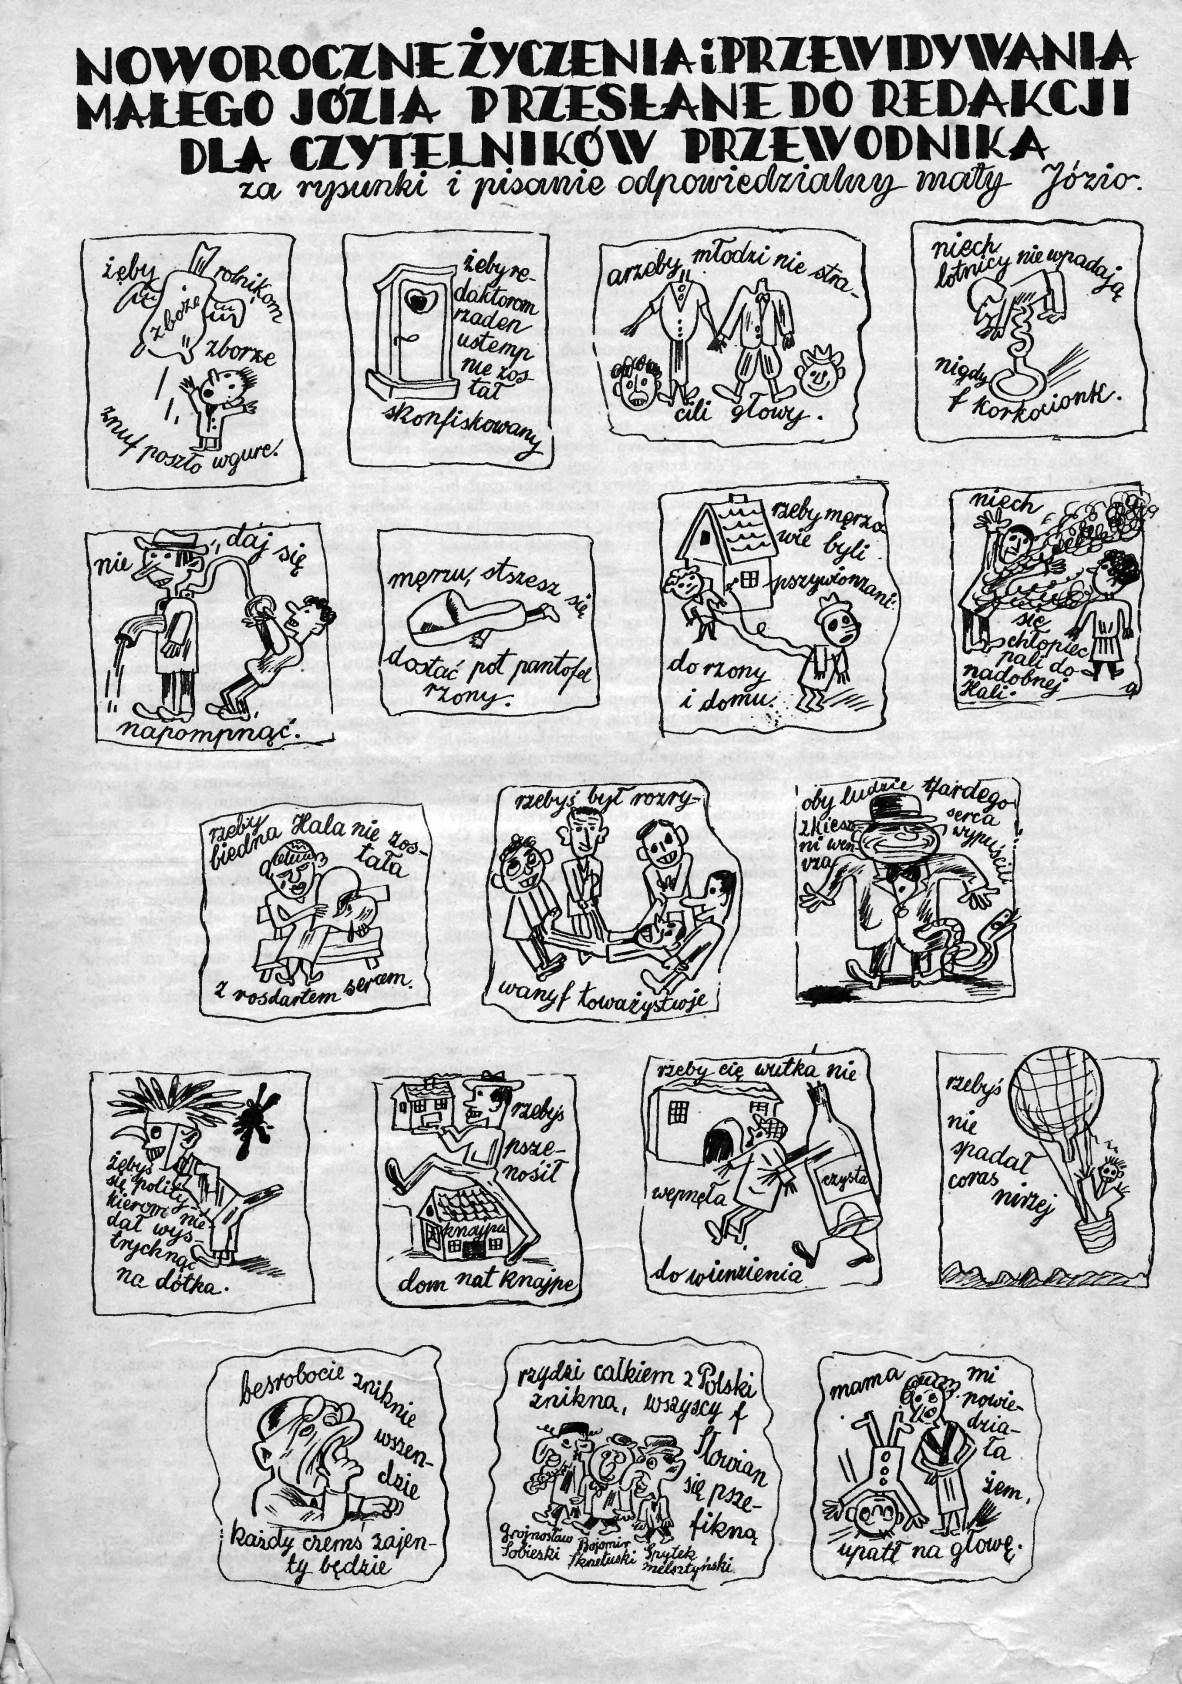 NOWOROCZNE ŻYCZENIA i PRZEWIDYWANIA
MAŁEGO JÓZIA PRZESŁANE DO REDAKCJI
DLA CZYTELNIKÓW PRZEWODNIKA
za rysunki i pisanie odpowiedzialny mały Józio.
żeby rolnikom
zboże
zborze
znuf poszło wgure!
żeby re-
daktorom
rzaden
ustemp
nie zos-
tał
skonfiskowany
arzeby młodzi nie stra-
cili głowy.
niech
lotnicy nie wpadają
nigdy
f korkocionk.
nie daj się
napompnąć.
męrzu, stszesz się
dostać pot pantofel
rzony.
rzeby męrzo-
wie byli
pszywionzani
do rzony
i domu.
niech
się
chłopiec
pali do
nadobnej
Hali.
rzeby
biedna Hala nie zos-
tała
z rosdartem sercem.
rzebyś był rozry-
wany f toważystwje
oby ludzie tfardego
serca
z kiesz
ni wen
rza
wypuścili
żebyś
się polity-
kierom nie
dał wys-
trychnąć
na dótka.
rzebyś
psze-
nosił
knajpa
dom nat knajpe
rzeby cię wutka nie
wepnęła
czysta
do wienzienia
rzebyś
nie
spadał
coras
nirzej
besrobocie zniknie
wszen-
dzie
każdy czemś zajen-
ty będzie
rzydzi całkiem z Polski
znikną, wszyscy f
Słowian
się psze-
fikną
Grojnosław
Sobieski
Bojomir
Skretuski
Spytek
melsztyński.
mama mi
powie-
dzia-
ła
żem,
upatł na głowę.